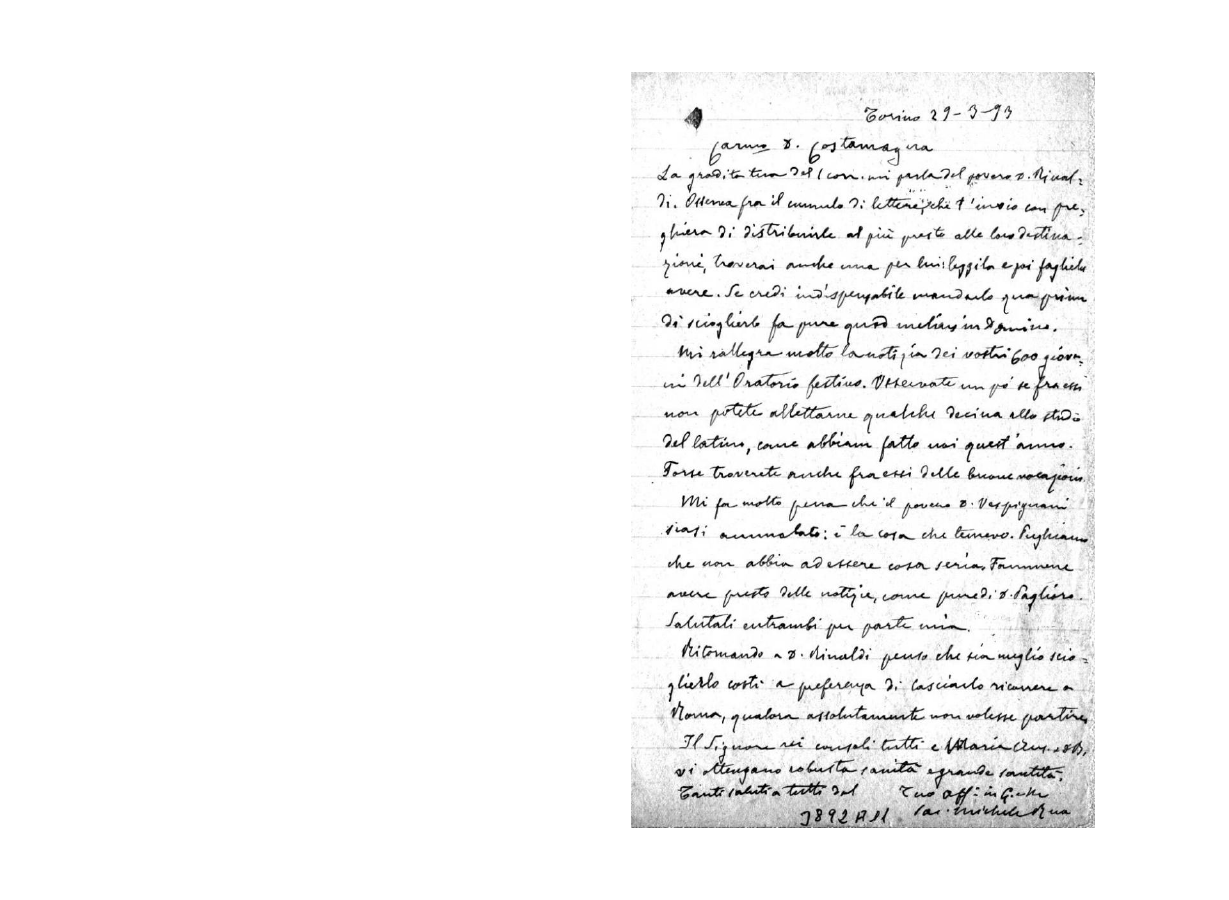 Torino 29-3-93
Carmo D. Costamagna
La gradita tua del 1 corr. mi parla del povero D. Rinal=
di. Osserva fra il cumulo di lettere, che t'invio con pre=
ghiera di distribuirle al più presto alle loro destina=
zioni, troverai anche una per lui: leggila e poi fagliela
avere. Se credi indispensabile mandarlo qua prima
di scioglierlo fa pure quod melius in Domino.
Mi rallegra molto la notizia dei vostri 600 giova=
ni dell'Oratorio festivo. Osservate un po' se fra essi
non potete allettarne qualche decina allo studio
del latino, come abbiam fatto noi quest'anno.
Forse troverete anche fra essi delle buone vocazioni.
Mi fa molto pena che il povero D. Vespignani
siasi ammalato: è la cosa che temevo. Preghiamo
che non abbia ad essere cosa seria. Fammene
avere presto delle notizie, come pure di D. Pagliere.
Salutali entrambi per parte mia.
Ritornando a D. Rinaldi penso che sia meglio scio=
glierlo costì a preferenza di lasciarlo ricorrere a
Roma, qualora assolutamente non volesse partire.
Il Signore vi consoli tutti e Maria Aus. e DB.
vi ottengano robusta sanità e grande santità.
Tanti saluti a tutti dal Tuo aff. in G. e M.
Sac. Michele Rua
3892